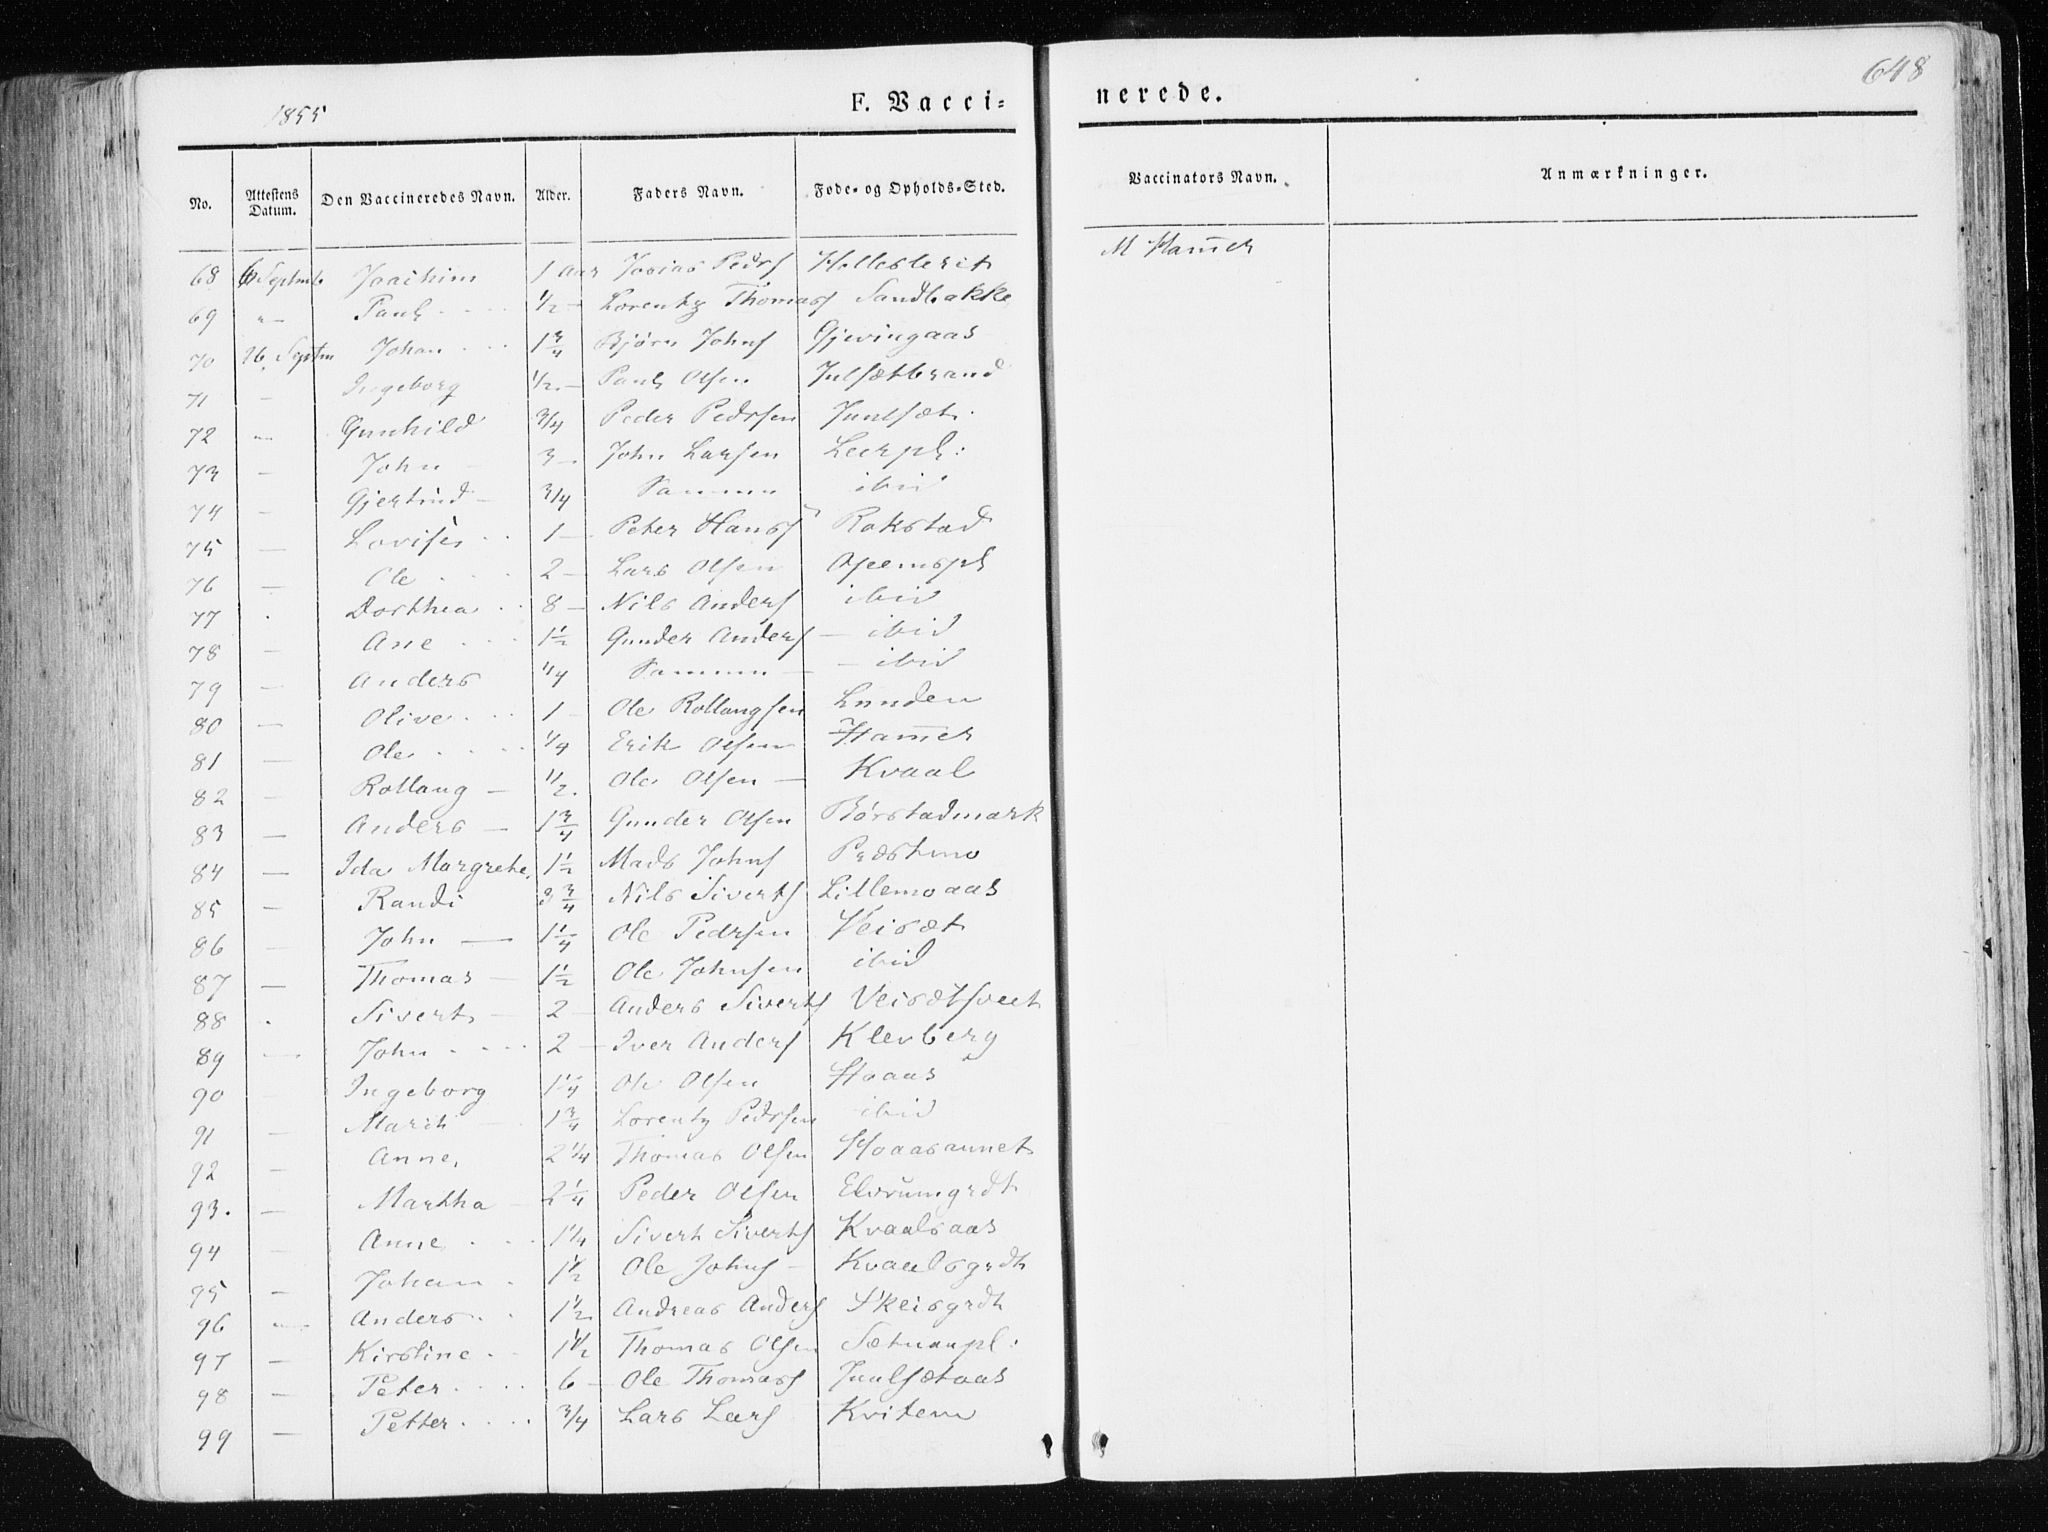 648
1855
F. Vacci=
nerede.
No. Attestens Datum. Den Vaccineredes Navn. Alder. Faders Navn. Føde- og Opholds-Sted. Vaccinators Navn. Anmærkninger.
68 6 Septmb Joachim 1 Aar Josias Peders M Hamer
69 " Paul ½ Lorentz Thomass Sandbakke
70 26 Septm Johan 1¾ Bjørn Johns Gjevingaas
71 - Ingeborg ½ - Paul Olsen Julsætbrand
72 " Gunhild ¾ Peder Pedrsen Juulsæt
73 - John - 3 - John Larsen Leerpl:
74 - Gjertrud - ¾ Sammen ibid
75 - Lovise 1 - Peter Hanss Rokstad
76 - Ole 2 - Lars Olsen
77 . Dorthea 8 - Nils Anders ibid
78 - Ane 1½ Gunder Anders - ibid
79 - Anders ¼ Sammen - - ibid
80 - Olive 1 - Ole Rollaugsen Lunden
81 - Ole ¼ Erik Olsen Hamer
82 - Rollaug - ½. Ole Olsen - Kvaal
83 - Anders - 1¾ Gunder Olsen Børstadmark
84 - Ida Margrethe 1½ Mads Johns
85 - Randi 3¾ Nils Siverts Lillemoaas
86 - John - 1¼ Ole Pedrsen Veisæt
87 - Thomas - 1½ Ole Johnsen ibid
88 . Sivert - 2 - Anders Siverts Veisætsveet
89 - John 2 - Iver Anders Klevberg
90 - Ingeborg 1¼ Ole Olsen Hoaas
91 - Marit - 1¾ Lorentz Pedrsen ibid
92 - Anne, 2¼ Thomas Olsen Hoaasaunet
93. - Martha - 2¼ Peder Olsen Elvrumgrdt
94 - Anne 1¼ Sivert Siverts Kvaalsaas
95 - Johan 1½ Ole Johns - Kvaalsgrdt
96 - Anders 1½ Andreas Anders Skeisgrdt
97 - Kirstine 1½ Thomas Olsen Sætnanpl:
98 - Peter 6 - Ole Thomass Juulsætaas
99 - Petter ¾ Lars Lars Kvitem